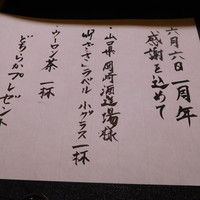 六月六日 一周年
感謝を込めて
・山口県 岡崎酒造場様
"ささ"ラベル 小グラス一杯
・ウーロン茶 一杯
どちらかプレゼント